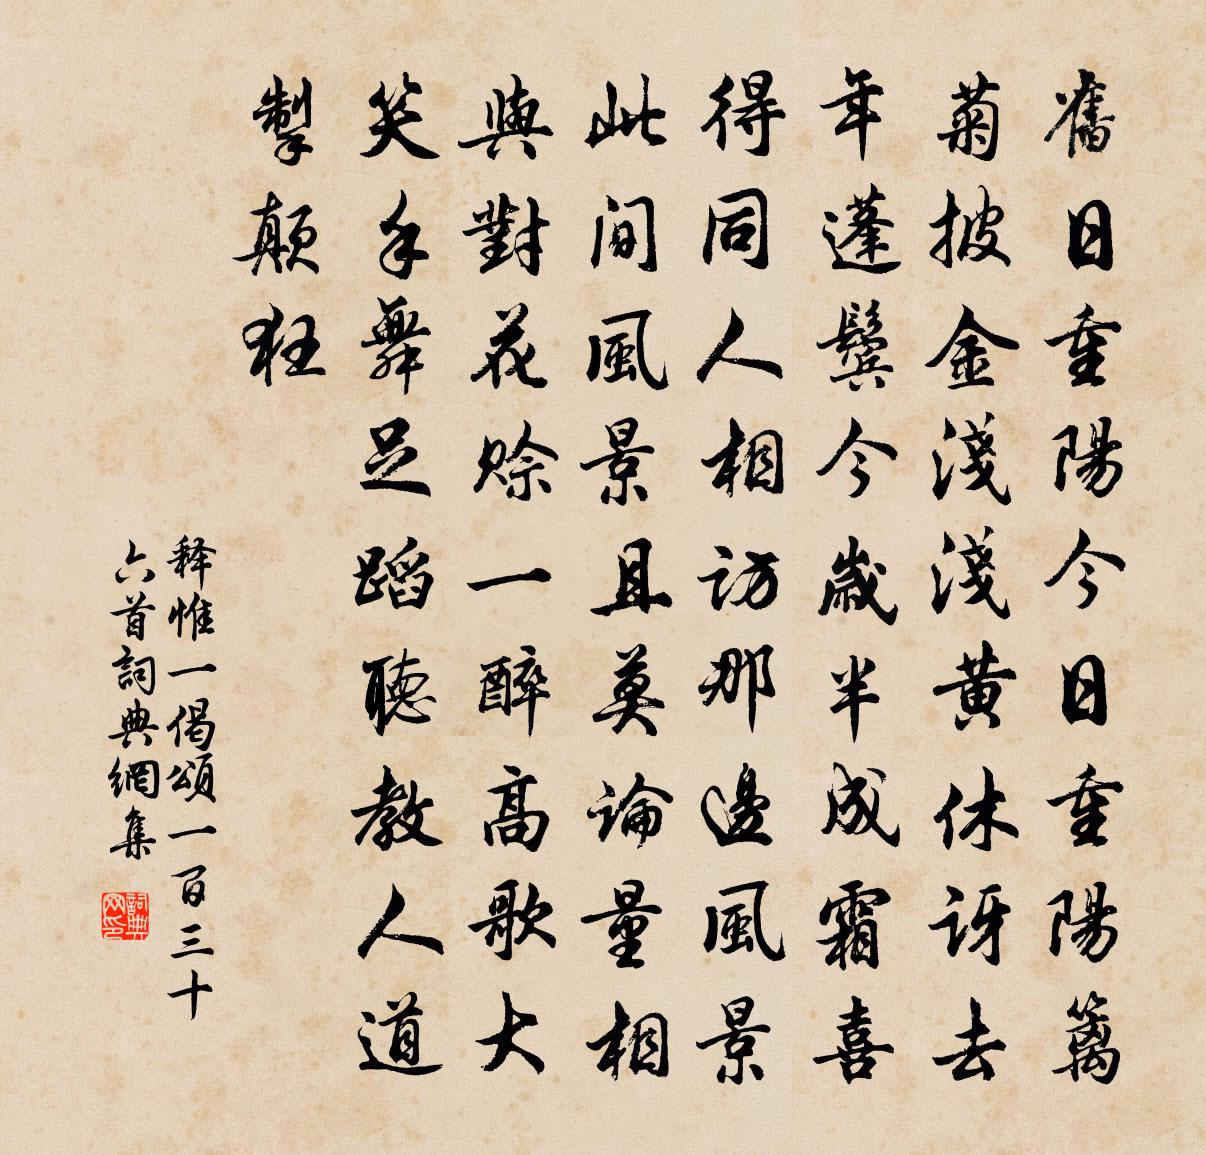 舊日重陽今日重陽籬
菊披金淺淺黃休訝去
年蓬鬓今歲半成霜喜
得同人相訪那邊風景
此間風景且莫論量相
與對花賒一醉高歌大
笑手舞足蹈聽教人道
掣顛狂
释惟一偈頌一百三十
六首詞典網集
詞典
网印